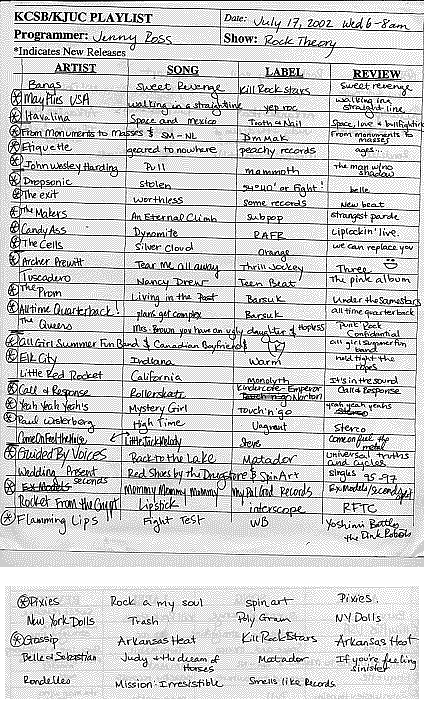 KCSB/KJUC PLAYLIST Date: July 17, 2002 Wed 6-8am
Programmer: Jenny Ross Show: Rock Theory
*Indicates New Releases
ARTIST SONG LABEL REVIEW
Bangs Sweet Revenge Kill Rock stars Sweet revenge
* Mayflies USA walking in a straight line yep roc walking in a straight line
* Havalina Space and mexico Tooth & Nail Space, love & bullfighting
* From Monuments to Masses SM-NL Dim Mak From monuments to masses
* Etiquette geared to nowhere peachy records ages...
* John Wesley Harding Pull mammoth The man w/no shadow
* Dropsonic stolen or Fight! belle
* The exit worthless some records New beat
* The Makers An Eternal Climb subpop strangest parade
* Candy Ass Dynomite RAFR Liplockin' live.
* The Cells Silver Cloud Orange we can replace you
* Archer Prewitt Tear me all away Thrill Jockey Three
Tuscadero Nancy Drew Teen Beat The pink album
* The Prom Living in the Past Barsuk Under the Same stars
* All time Quarterback! plans get complex Barsuk all time quarterback
The Queers Mrs. Brown you have an ugly daughter Hopless Punk Rock Confidential
* All Girl Summer Fun Band Canadian Boyfriend K all girl summer fun band
* Elk City Indiana Warm hold tight the ropes
Little Red Rocket California monolyth It's in the sound
* Call & Response Rollerskate Kindercore-Emperor Norton Call & Response
* Yeah Yeah Yeah's Mystery Girl touch n' go yeah yeah yeahs
* Paul Westerberg High Time Vagrant Stereo
Come On Feel the Noise Little Jack Melody Steve come on feel the metal
* Guided By Voices Back to the Lake Matador universal truths and cycles
Wedding Present Red Shoes by the Drugstore Spin Art singles 95-97
* Ex Models seconds Mommy Mommy Mommy My Pal God Records Ex Models/Seconds
Rocket From the Crypt Lipstick interscope RFTC
* Flamming Lips Fight Test WB Yoshimi Battles the Pink Robots
* Pixies Rock a my soul spin art Pixies
New York Dolls Trash Poly Gram NY Dolls
* Gossip Arkansas Heat Kill Rock Stars Arkansas Heat
Belle & Sebastian Judy & the dream of Horses Matador If you're feeling sinister
Rondelles Mission: Irresistible Smells like Records